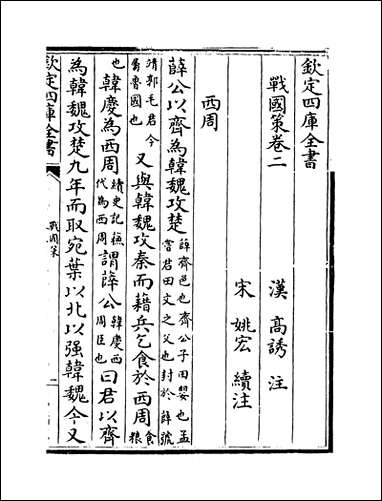 欽定四庫全書
戰國策卷二 漢 高誘 注
宋 姚宏 續注
西周
薛公以齊為韓魏攻楚薛齊邑也齊公子田嬰也孟嘗君田文之父也封於薛號
靖郭毛君今屬魯國也又與韓魏攻秦而藉兵乞食於西周食糧
也韓慶為西周續史記蘇代為西周謂薛公韓慶西周臣也曰君以齊
為韓魏攻楚九年而取宛葉以北以强韓魏今又
欽定四庫全書 戰國策